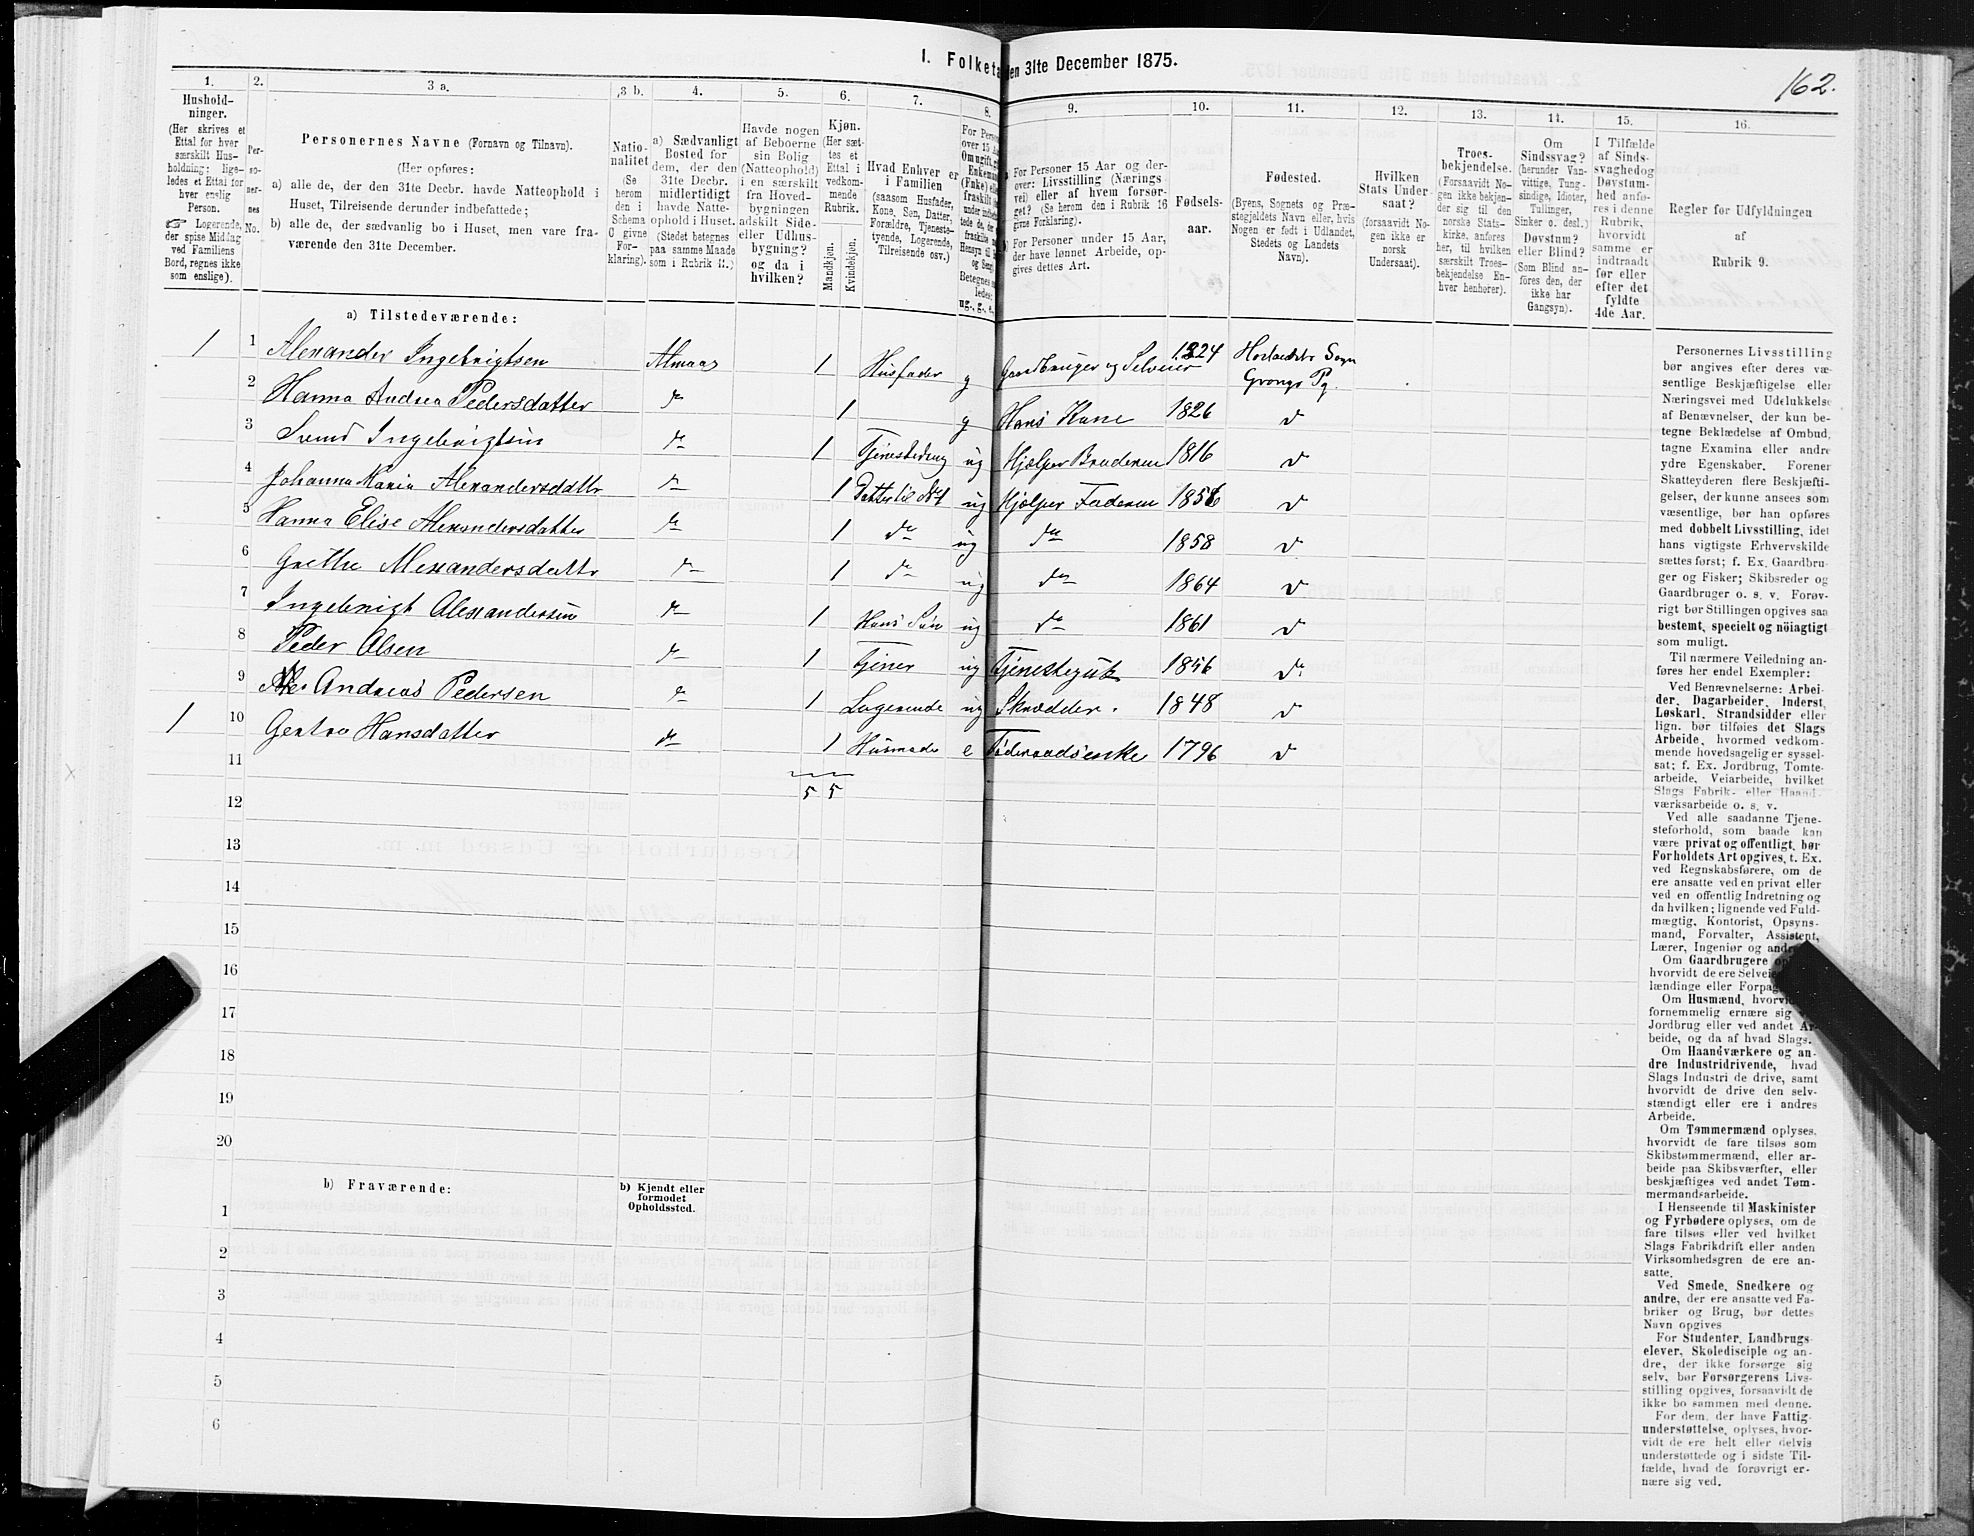 I. Folketa en 31te December 1875.
162.
1.
Hushold-
ninger.
(Her skrives et
Ettal for hver
særskilt Hus-
holdning; lige-
ledes et Ettal for
hver enslig
Person.
Logerende,
der spise Middag
ved Familiens
Bord, regnes ikke
som enslige).
2.
Per-
so-
ner-
nes
No.
3 a.
Personernes Navne (Fornavn og Tilnavn).
(Her opføres:
a) alle de, der den 31te Decbr. havde Natteophold i
Huset, Tilreisende derunder indbefattede;
b) alle de, der sædvanlig bo i Huset, men vare fra-
værende den 31te December.
3 b.
Natio-
nalitet
(Se
herom
den i
Schema
C givne
For-
klaring).
4.
a) Sædvanligt
Bosted for
dem, der den
31te Decbr.
midlertidigt
havde Natte-
ophold i Huset.
(Stedet betegnes
paa samme Maade
som i Rubrik 11.)
5.
Havde nogen
af Beboerne
sin Bolig
(Natteophold)
i en særskilt
fra Hoved-
bygningen
adskilt Side-
eller Udhus-
bygning?
og da i
hvilken?
6.
Kjøn.
(Her sæt-
tes et
Ettal i
vedkom-
mende
Rubrik.
Mandkjøn.
Kvindekjøn.
7.
Hvad Enhver er
i Familien
(saasom Husfader,
Kone, Søn, Datter,
Forældre, Tjeneste-
tyende, Logerende,
Tilreisende osv.)
8.
9.
For Personer 15 Aar og der-
over: Livsstilling (Nærings
vei) eller af hvem forsør-
get? (Se herom den i Rubrik 16
givne Forklaring).
For Personer under 15 Aar,
der have lønnet Arbeide, op-
gives dettes Art.
10.
Fødsels-
aar.
11.
Fødested.
(Byens, Sognets og Præ-
stegjeldets Navn eller, hvis
Nogen er født i Udlandet,
Stedets og Landets
Navn).
12.
Hvilken
Stats Under-
saat?
(forsaavidt No-
gen ikke er
norsk
Undersaat).
13.
Troes-
bekjendelse.
(Forsaavidt No-
gen ikke bekjen-
der sig til den
norske Stats-
kirke, anføres
her, til hvilken
særskilt Troes-
bekjendelse En-
hver henhører).
14.
Om
Sindssvag?
(herunder Van-
vittige, Tung-
sindige, Idioter,
Tullinger,
Sinker o. desl.)
Døvstum?
eller Blind?
(Som Blind an-
føres den, der
ikke har
Gangsyn).
15.
I Tilfælde
af Sinds-
svaghed og
Døvstum-
hed anfø-
res i denne
Rubrik,
hvorvidt
samme er
indtraadt
før eller
efter det
fyldte
4de Aar.
16.
Regler for Udfyldningen
af
Rubrik 9.
a) Tilstedeværende:
1 1 Alexander Ingebrigtsen Almaas 1 Husfader g Gaardbruger og Selveier 1824 Sogn
Grongs Pg.
2 Hanna Andrea Pedersdatter do 1 g Hans Kone 1826 do
3 Svend Ingebrigtsen do 1 ug Hjælper Broderen 1816 do
4 Johanna Maria Alexandersdattr do 1 Datter til No 1 ug Hjælper Faderen 1856 do
5 Hanna Elise Alexandersdatter do 1 do ug do 1858 do
6 Grethe Alexandersdattr do 1 do ug do 1864 do
7 Ingebrigt Alexandersen do 1 Hans Søn ug do 1861 do
8 Peder Olsen do 1 Tjener ug 1856 do
9 Andreas Pedersen do 1 Logerende ug Skrædder. 1848 do
1 10 Hansdatter do 1 e Føderaadsenke 1796 do
11
5 5
12
13
14
15
16
17
18
19
20
b) Fraværende:
b) Kjendt eller
formodet
Opholdssted.
1
2
3
4
5
6
Personernes Livsstilling
bør angives efter deres væ-
sentlige Beskjæftigelse eller
Næringsvei med Udelukkelse
af Benævnelser, der kun be-
tegne Beklædelse af Ombud,
tagne Examina eller andre
ydre Egenskaber. Forener
Skatteyderen flere Beskjæfti-
gelser, der kunne ansees som
væsentlige, bør han opføres
med dobbelt Livsstilling, idet
hans vigtigste Erhvervskilde
sættes først; f. Ex. Gaardbru-
ger og Fisker; Skibsreder og
Gaardbruger o. s. v. Forøv-
rigt bør Stillingen opgives saa
bestemt, specielt og nöiagtigt
som muligt.
Til nærmere Veiledning an-
føres her endel Exempler:
Ved Benævnelserne: Arbei-
der, Dagarbeider, Inderst,
Løskarl, Strandsidder eller
lign. bør tilføies det Slags
Arbeide, hvormed vedkom-
mende hovedsagelig er syssel-
sat; f. Ex. Jordbrug, Tomte-
arbeide, Veiarbeide, hvilket
Slags Fabrik- eller Haand-
værksarbeide o. s. v.
Ved alle saadanne Tjene-
steforhold, som baade kan
være privat og offentligt, bør
Forholdets Art opgives, t. Ex.
ved Regnskabsførere, om de
ere ansatte ved en privat eller
ved en offentlig Indretning og
da hvilken; lignende ved Fuld-
mægtig, Kontorist, Opsyns-
mand, Forvalter, Assistent,
Lærer, Ingeniør og andre
Om Gaardbrugere
hvorvidt de ere Selveiere
lændinge eller
Om Husmænd,
fornemmelig ernære sig
Jordbrug eller ved andet Ar-
beide, og da af hvad Slags.
Om Haandværkere og an-
dre Industridrivende, hvad
Slags Industri de drive, samt
hvorvidt de drive den selv-
stændigt eller ere i andres
Arbeide.
Om Tømmermænd oplyses,
hvorvidt de fare tilsøs som
Skibstømmermænd, eller ar-
beide paa Skibsværfter, eller
beskjæftiges ved andet Tøm-
mermandsarbeide.
I Henseende til Maskinister
og Fyrbødere oplyses, om de
fare tilsøs eller ved hvilket
Slags Fabrikdrift eller anden
Virksomhedsgren de ere an-
satte.
Ved Smede, Snedkere og
andre, der ere ansatte ved Fa-
briker og Brug, bør dettes
Navn opgives
For Studenter, Landbrugs-
elever, Skoledisciple og an-
dre, der ikke forsørge sig
selv, bør Forsørgerens Livs-
stilling opgives, forsaavidt de
ikke bo sammen med denne.
For dem, der have Fattig-
understøttelse, oplyses, hvor-
vidt de ere helt eller delvis
understøttede og i sidste Til-
fælde, hvad de forøvrigt er-
nære sig ved.